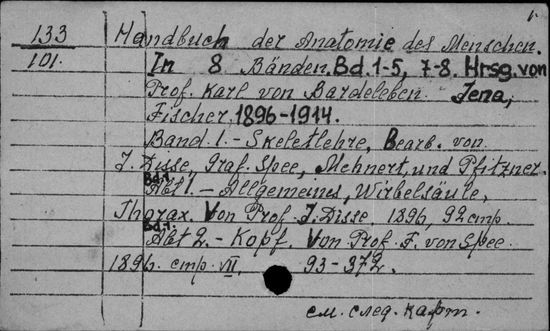 133 Handbuch der Anatomie des Menschen.
101. In 8 Bänden. Bd. 1-5, 7-8. Hrsg. von
Prof. Karl von Bardeleben. Jena,
Fischer, 1896-1914.
Band 1. - Skeletlehre, Bearb. von
J. Disse, Graf. Spee, Mehnert, und Pfitzner.
Bd. 1.
Abt 1. - Allgemeines, Wirbelsäule,
Thorax. Von Prof. J. Disse. 1896, 92 стр.
Bd. 1.
Abt 2. - Kopf. Von Prof. F. von Spee.
1896. стр. VII, 93-372.
см. след. карт.